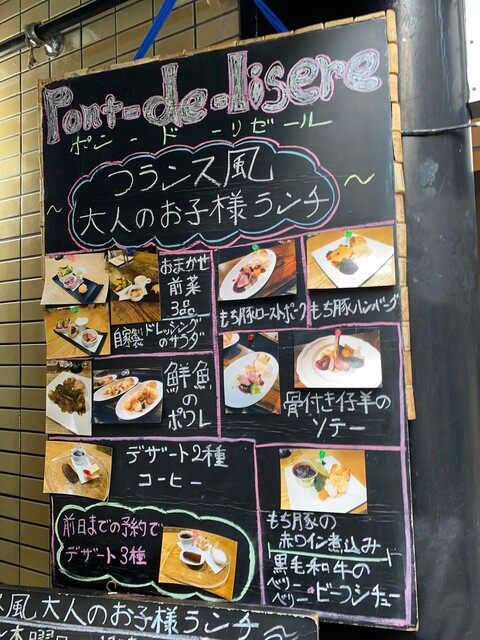 Pont-de-lisere
ポン - ド - リゼール
フランス風
大人のお子様ランチ
おまかせ
前菜
3品
自家製ドレッシング
のサラダ
もち豚ローストポーク
もち豚ハンバーグ
鮮魚
の
ポワレ
骨付き仔羊の
ソテー
デザート2種
コーヒー
前日までの予約で
デザート3種
もち豚の
赤ワイン煮込み
黒毛和牛の
ベリーベリービーフシチュー
ス風 大人のお子様ランチ